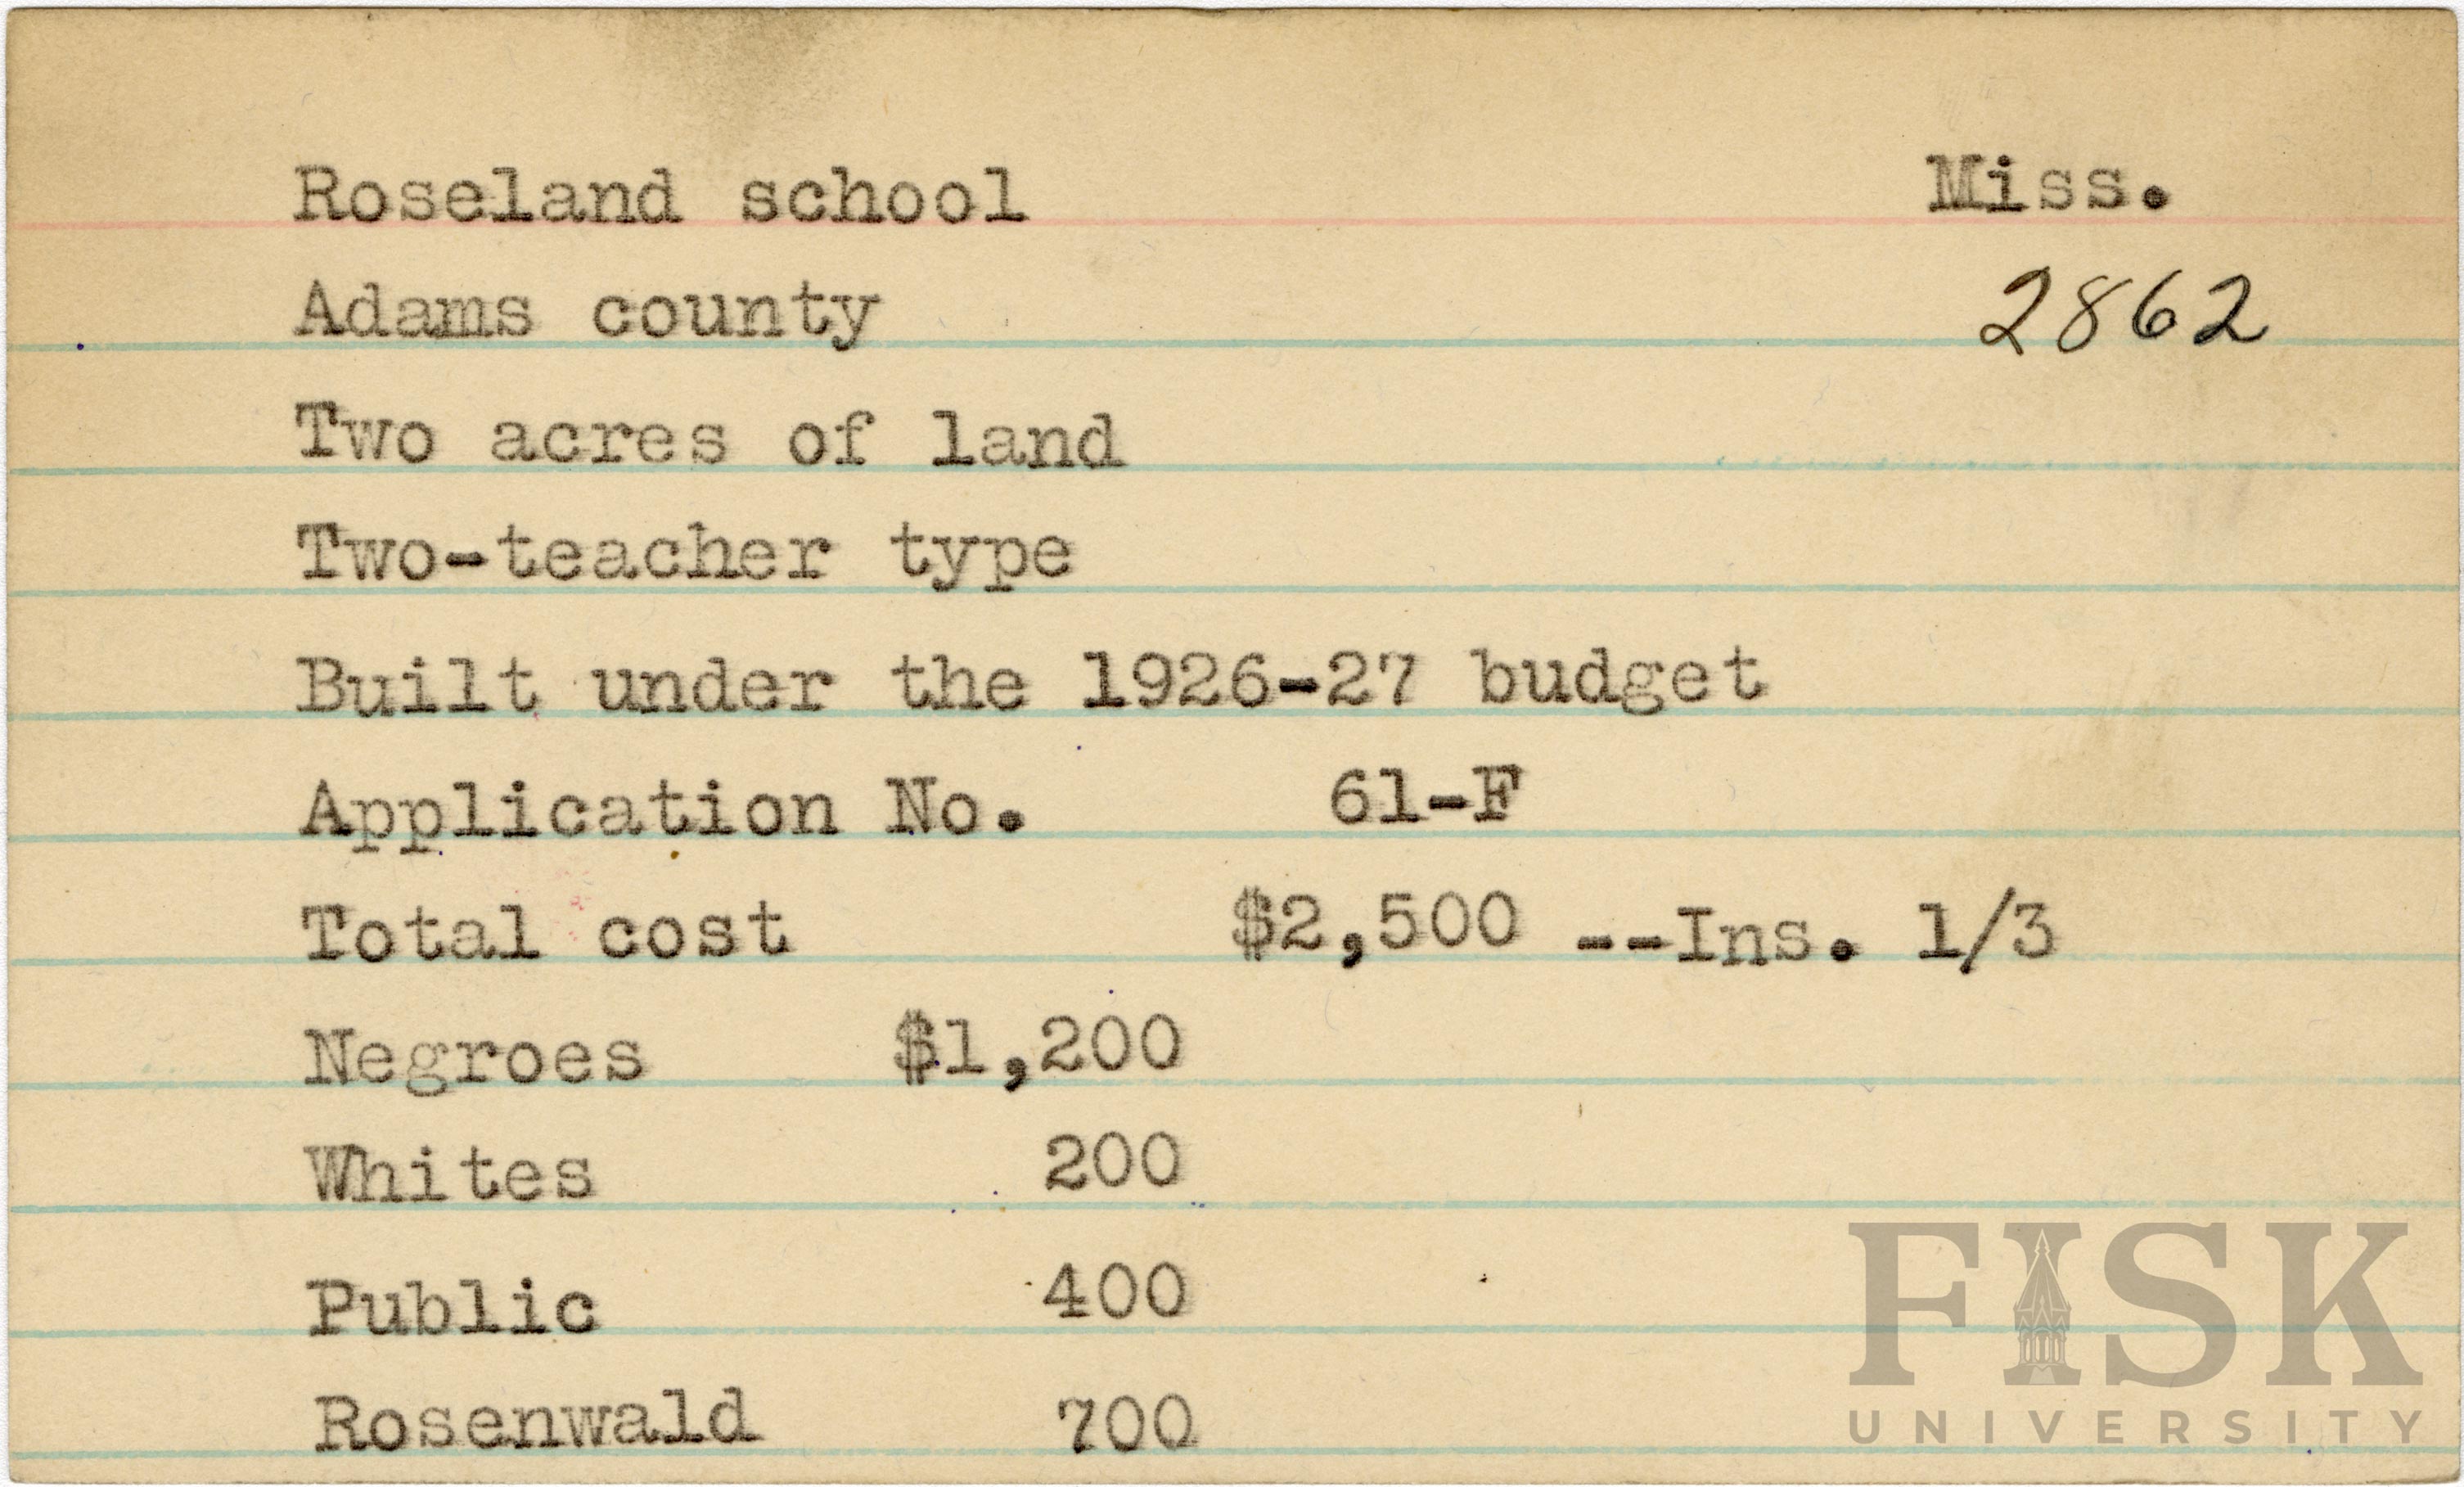 Roseland school Miss.
Adams county 2862
Two acres of land
Two-teacher type
Built under the 1926-27 budget
Application No. 61-F
Total cost $2,500 --Ins. 1/3
Negroes $1,200
Whites 200
Public 400
Rosenwald 700
FISK
UNIVERSITY